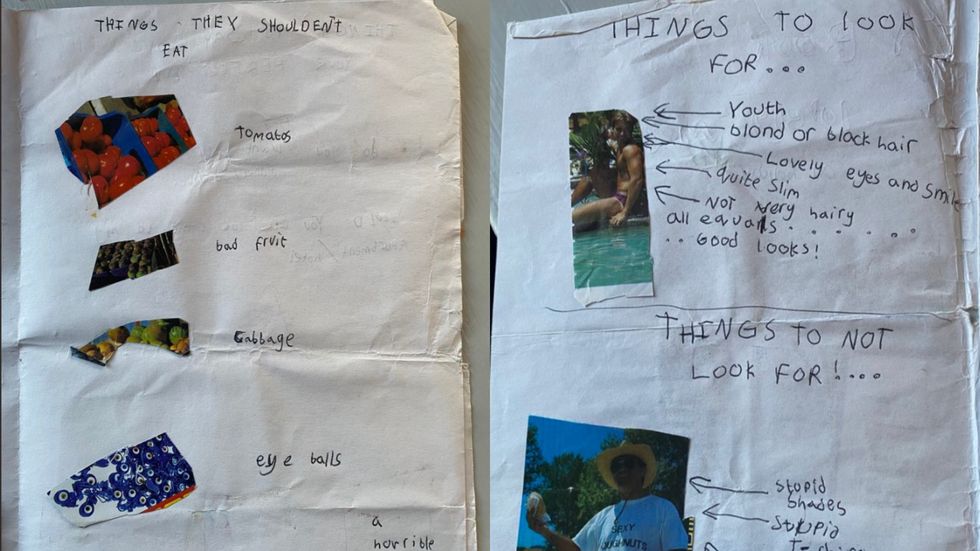 THINGS THEY SHOULDEN'T
EAT
tomatos
bad fruit
Cabbage
eye balls
a
horrible
THINGS TO LOOK
FOR...
Youth
blond or black hair
Lovely eyes and smile
quite slim
Not very hairy
all equals . . . . . .
. . Good looks!
THINGS TO NOT
LOOK FOR!...
stupid
shades
stupid
SEXY
DUGHNUTS